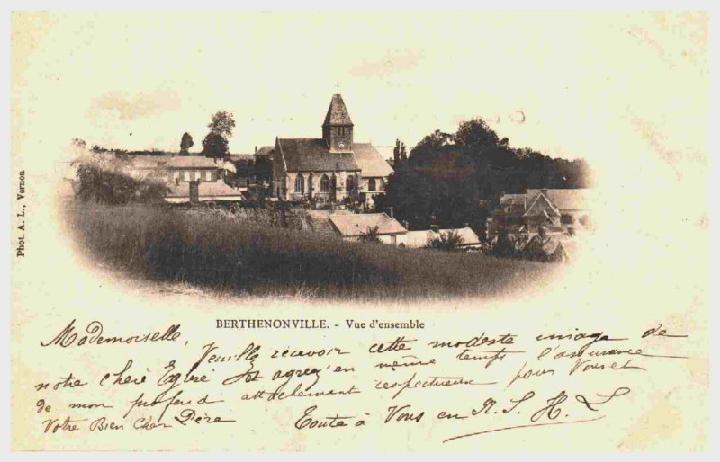 Phot. A. L., Vernon
BERTHENONVILLE. - Vue d'ensemble
Mademoiselle,
Veuillé récevoir cette modeste image de
notre Cheré Eglise Et agreyé en même temps l'assurance
de mon profond attachement respectueux pour Vous et
Votre Bien Cher Père Toute à Vous en N. S. H. L